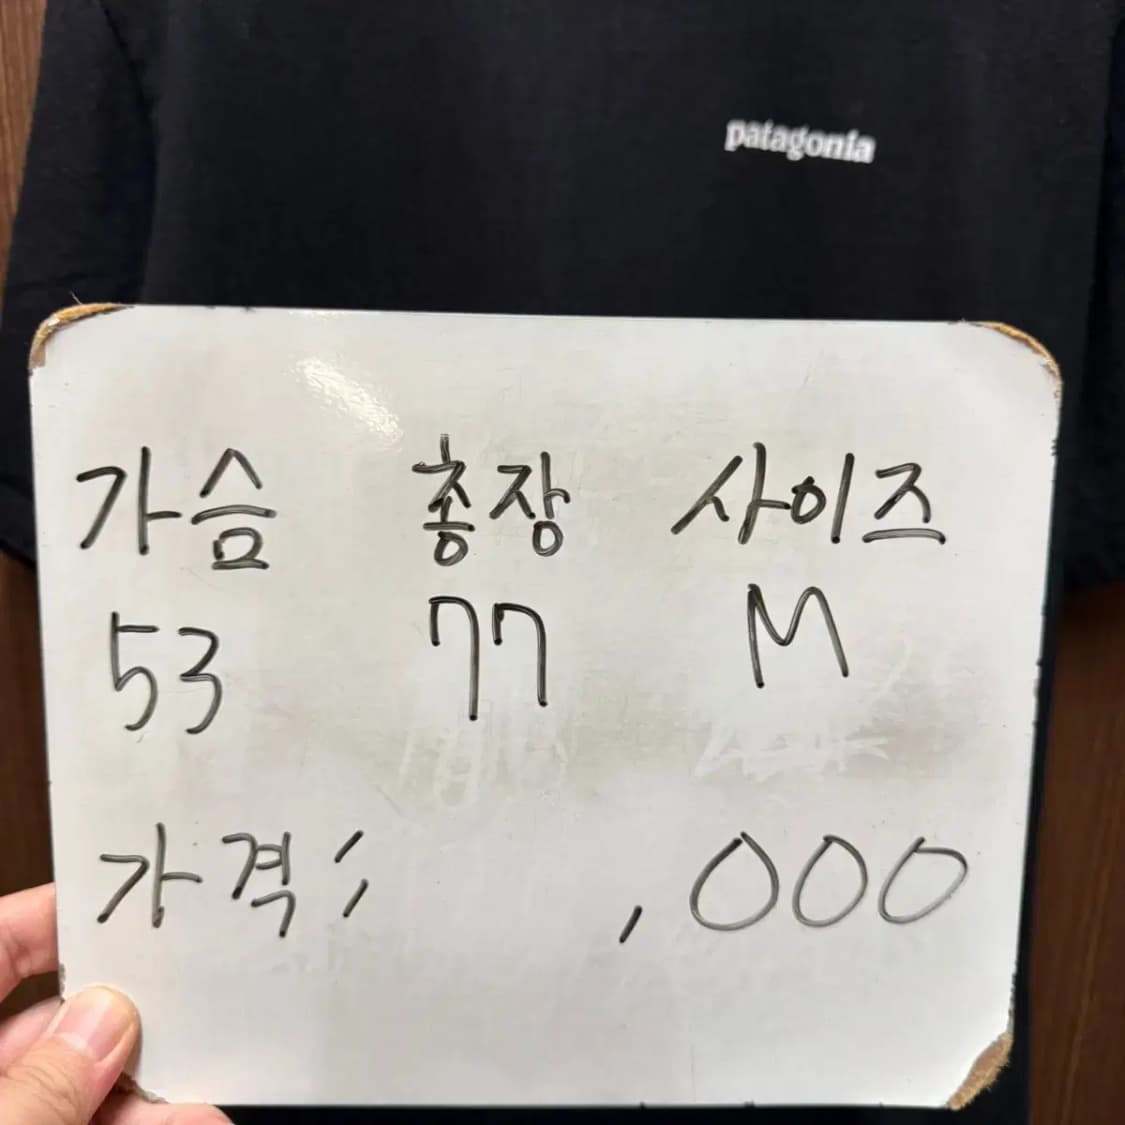 patagonia
가슴 총장 사이즈
53 77 M
가격: ,000